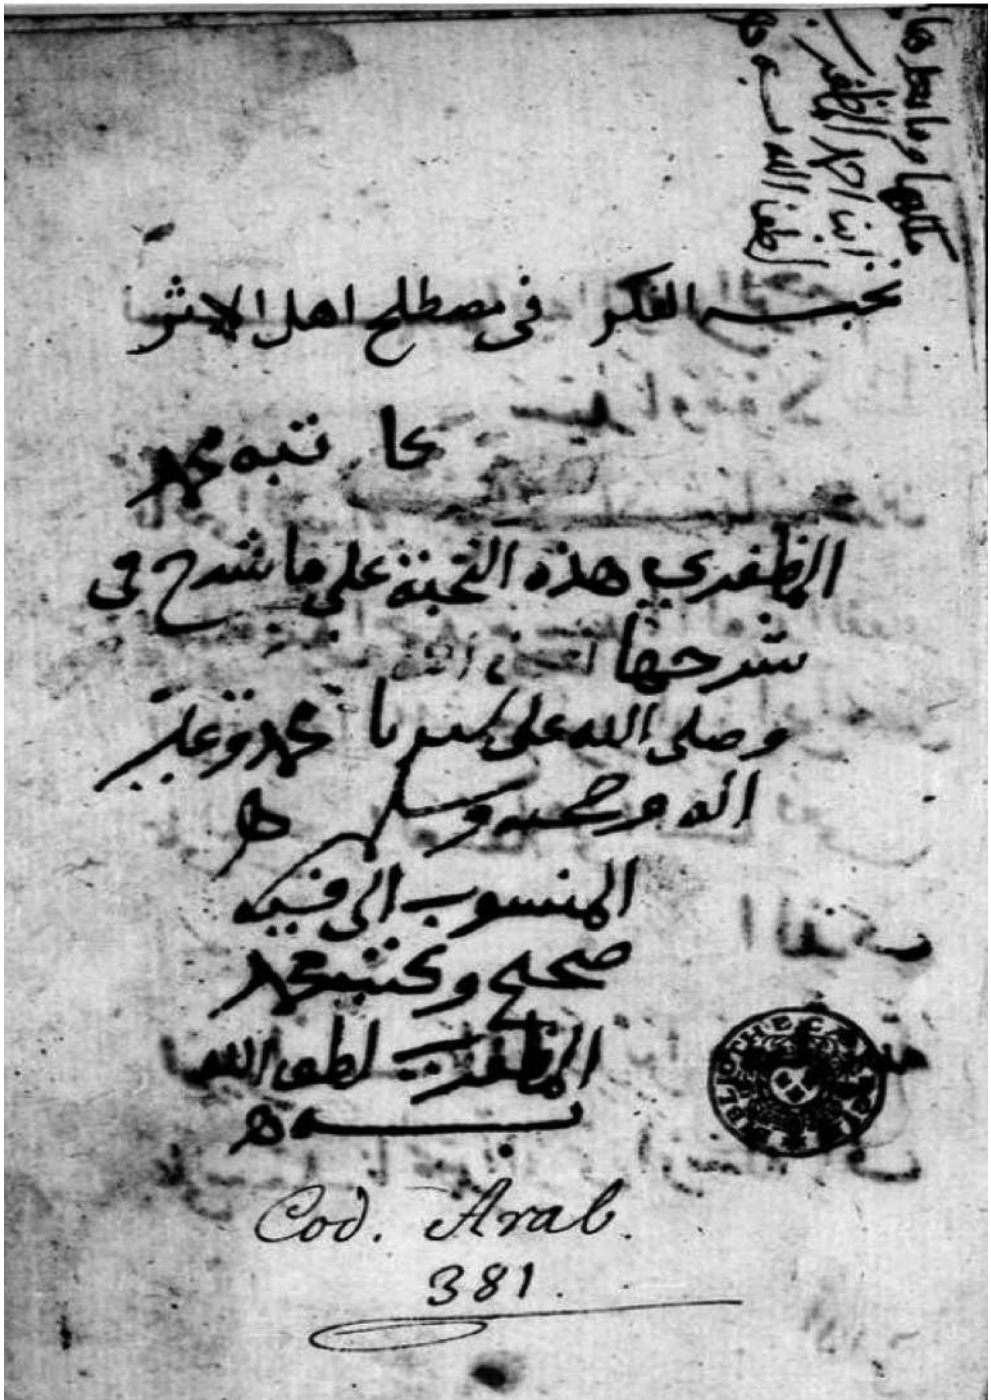 طالعها وما يطر فها
ابن الأمير المظفري
لطف الله به
نخبه الفكر في مصطلح اهل الاثر
كا تبه محمد
المظفري هذه النخبة على ما شرح في
شرحها
وصلى الله على سيدنا محمد وعلى
اله وصحبه وسلم ه
المنسوب الى فيه
صحيح وكتبه محمد
المظفري لطف الله
به ه
Cod. Arab.
381.